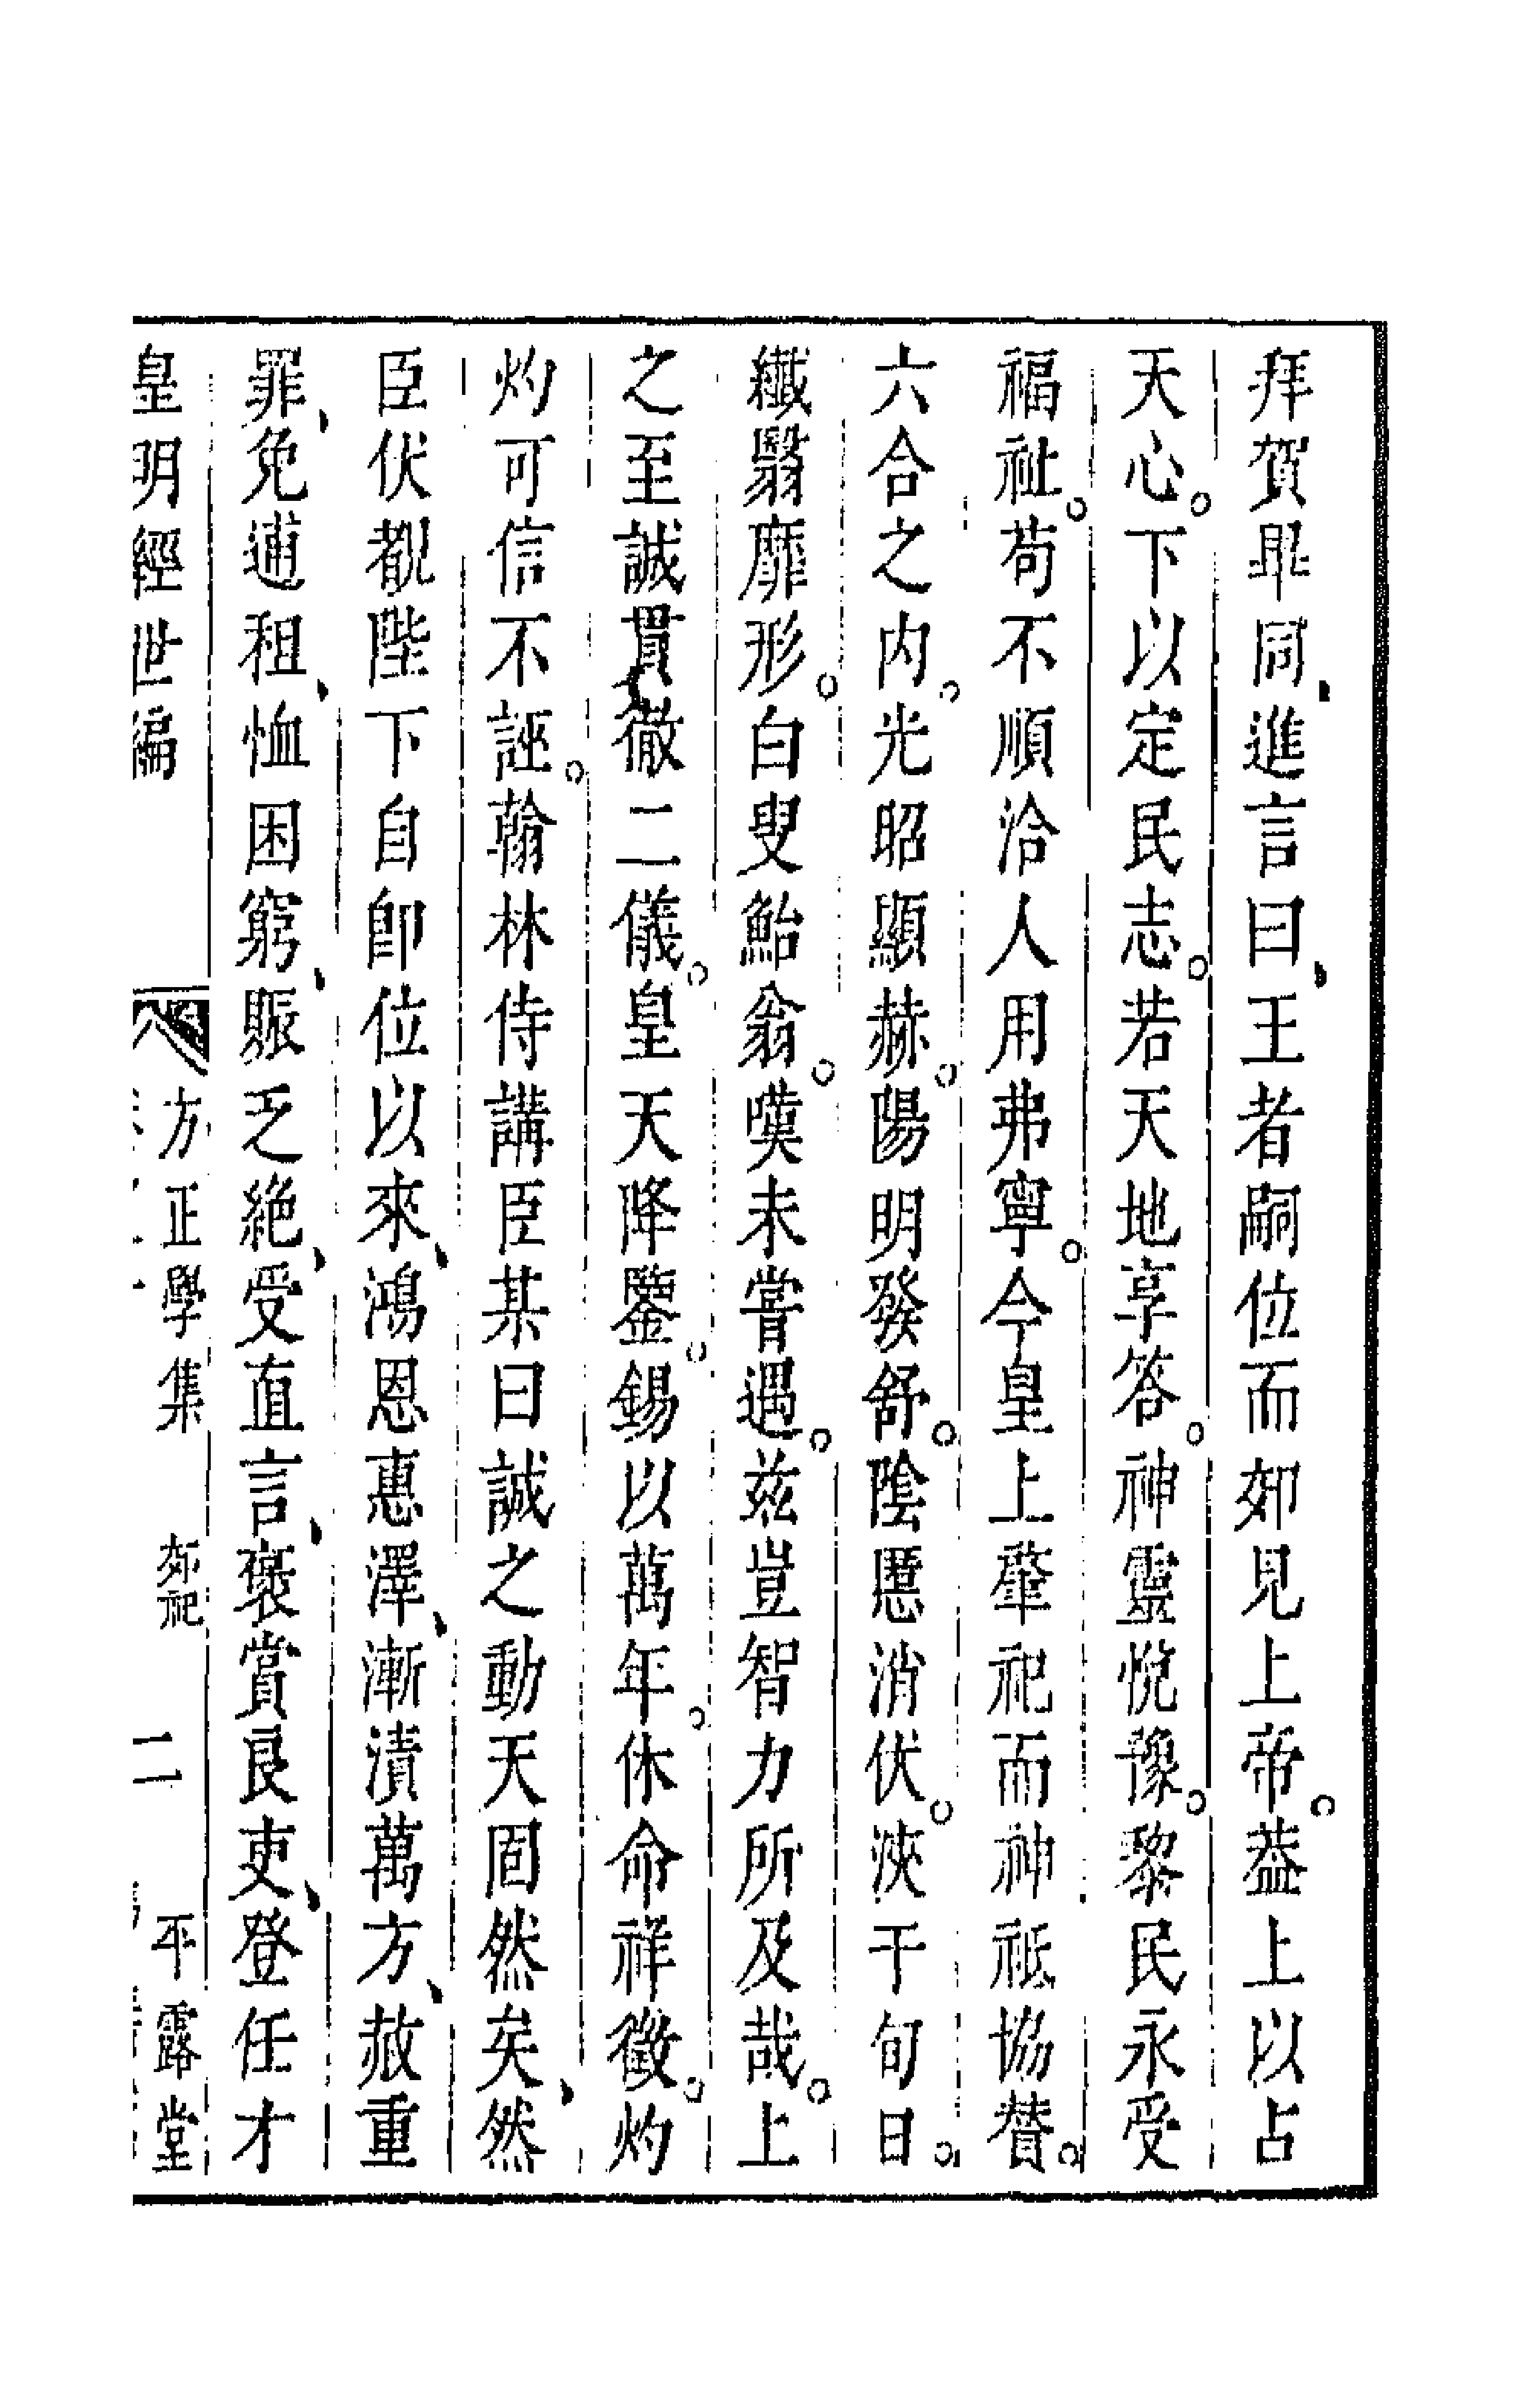 拜賀畢同進言曰王者嗣位而郊見上帝蓋上以占
天心下以定民志若天地享答神靈悅豫黎民永受
福祉苟不順洽人用弗寧今皇上肇祀而神祗協賛
六合之内光昭顯赫陽明發舒陰慝消伏浹于旬日
纎翳靡形白叟鮐翁嘆未嘗遇兹豈智力所及哉上
之至誠貫徹二儀皇天降鑒錫以萬年休命祥徵灼
灼可信不誣翰林侍講臣某曰誠之動天固然矣然
臣伏覩陛下自卽位以來鴻恩惠澤漸漬萬方赦重
罪免逋租恤困窮賑乏絶受直言褒賞良吏登任才
皇明經世編
方正學集 郊祀
二
平露堂